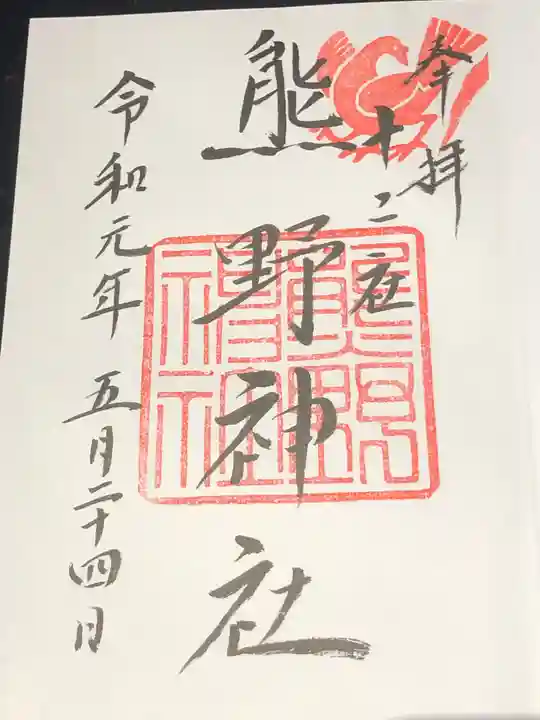 奉拝
十二社
熊野神社
令和元年五月二十四日